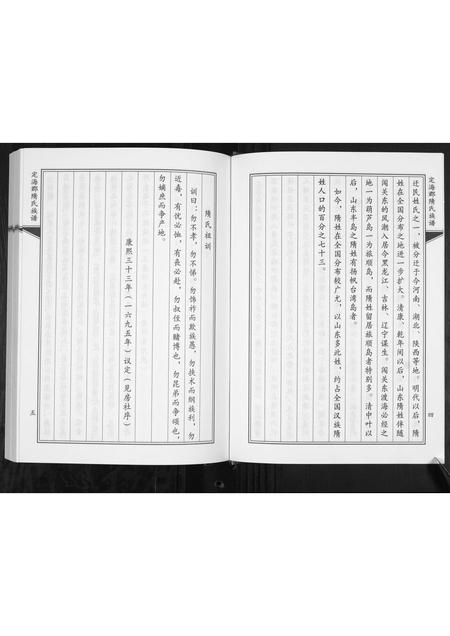 定海郡隋氏族谱
迁民姓氏之一，被分迁于今河南、湖北、陕西等地。明代以后，隋
姓在全国分布之地进一步扩大。清康、乾年间以后，山东隋姓伴随
闯关东的风潮入居今黑龙江、吉林、辽宁谋生。闯关东渡海必经之
地一为葫芦岛一为旅顺岛，而隋姓留居旅顺岛者特别多。清中叶以
后，山东半岛之隋姓有扬帆台湾岛者。
如今，隋姓在全国分布较广尤，以山东多此姓，约占全国汉族隋
姓人口的百分之七十三。
四
定海郡隋氏族谱
隋氏祖训
训曰：勿不孝，勿不悌。勿饰祚而欺族愚，勿挟术而纲族利，勿
近毒，有优必恤，有丧必赴，勿叔侄而赌博也，勿昆弟而争颂也，
勿嫡庶而争产地。
康熙三十三年（一六九五年）议定（见房社序）
五